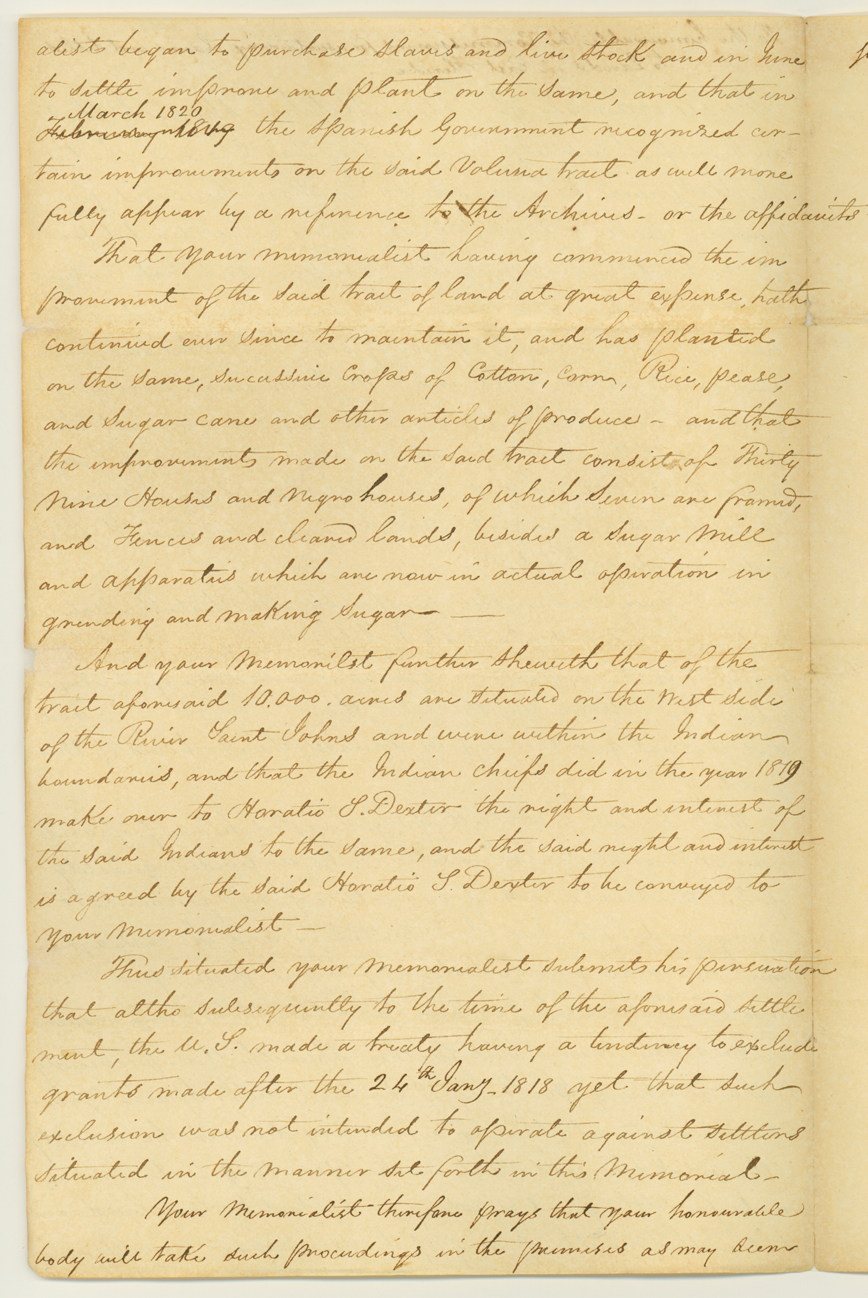 alist began to purchase slaves and live stock and in June
to settle improve and plant on the same, and that in
March 1820
February 1819 the Spanish Government recognized cer-
tain improvements on the said Volusia tract as well more
fully appear by a reference to the Archives - or the affidavits
That your memorialist having commenced the im
provement of the said tract of land at great expense, hath
continued ever since to maintain it, and has planted
on the same, sucessive Crops of Cotton, Corn, Rice, pease,
and Sugar cane and other articles of produce - and that
the improvements made on the said tract consist of Thirty
Nine Houses and Negro houses, of which Seven are framed,
and Fences and cleared lands, besides a Sugar Mill
and apparatus which are now in actual operation in
grinding and making Sugar —
And your Memorilst further sheweth that of the
tract aforesaid 10.000. acres are situated on the West side
of the River Saint Johns and were within the Indian
boundaries, and that the Indian Chiefs did in the year 1819
make over to Horatio S. Dexter the right and interest of
the said Indians to the same, and the said right and interest
is agreed by the said Horatio S. Dexter to be conveyed to
your Memorialist —
Thus situated your Memorialist submits his persuation
that altho subsequently to the time of the aforesaid settle
ment, the U. S. made a treaty having a tendency to exclude
grants made after the 24th Jany. 1818 yet that such
exclusion was not intended to operate against settlers
situated in the manner set forth in this Memorial -
Your Memorialist therefore prays that your honourable
body will take such procudings in the premises as may seem